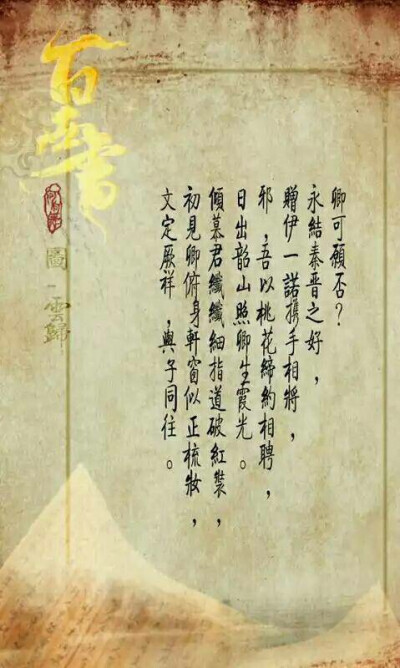 文定厥祥,與子同往。
初見卿俯身軒窗似正梳妝,
傾慕君纖纖細指道破紅裝,
日出韶山照卿生霞光。
邪,吾以桃花締約相聘,
贈伊一諾攜手相將,
永結秦晉之好,
卿可願否?
圖-雲歸